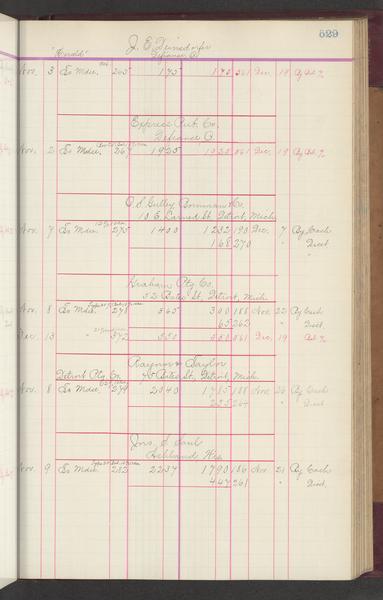 529
"Herald" J. E. Defiance, O.
Nov. 3 To Mdse. 265 175 175 261 Dec. 19 By Bal. %
Express Pub. Co.
Defiance O.
Nov. 2 To Mdse. 267 1925 1925 261 Dec. 19 By Bal. %
O. S. Gulley Bornman & Co.
10 E. Larned St. Detroit, Mich.
Nov. 7 To Mdse. 275 1400 1232 190 Dec. 7 By Cash
168 270 " Disct.
"
Graham Ptg Co.
52 Bates St., Detroit, Mich.
Nov. 8 To Mdse. 278 365 300 188 Nov. 22 By Cash
65 262 " Disct.
Dec. 13 " 372 350 350 261 Dec. 19 " Bal. %
Raynor & Taylor
Detroit Ptg. Co. 75 Bates St., Detroit, Mich.
Nov. 8 To Mdse. 279 2040 1785 188 Nov. 26 By Cash
255 264 " Disct.
Jno. S. Saul
Ashland Wis
Nov. 9 To Mdse. 282 2237 1790 186 Nov. 21 By Cash
447 261 " Disct.